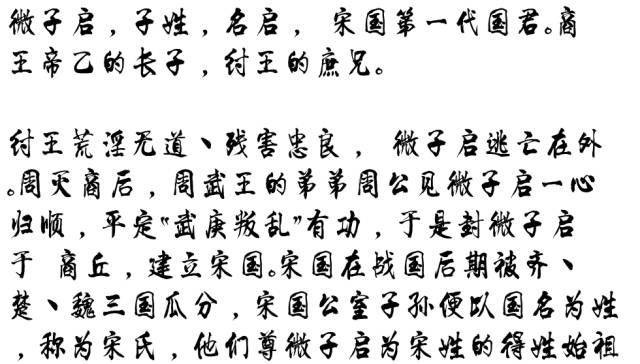 微子启，子姓，名启， 宋国第一代国君。商
王帝乙的长子，纣王的庶兄。
纣王荒淫无道、残害忠良， 微子启逃亡在外
。周灭商后，周武王的弟弟周公见微子启一心
归顺，平定“武庚叛乱”有功，于是封微子启
于 商丘，建立宋国。宋国在战国后期被齐、
楚、魏三国瓜分，宋国公室子孙便以国名为姓
，称为宋氏，他们尊微子启为宋姓的得姓始祖